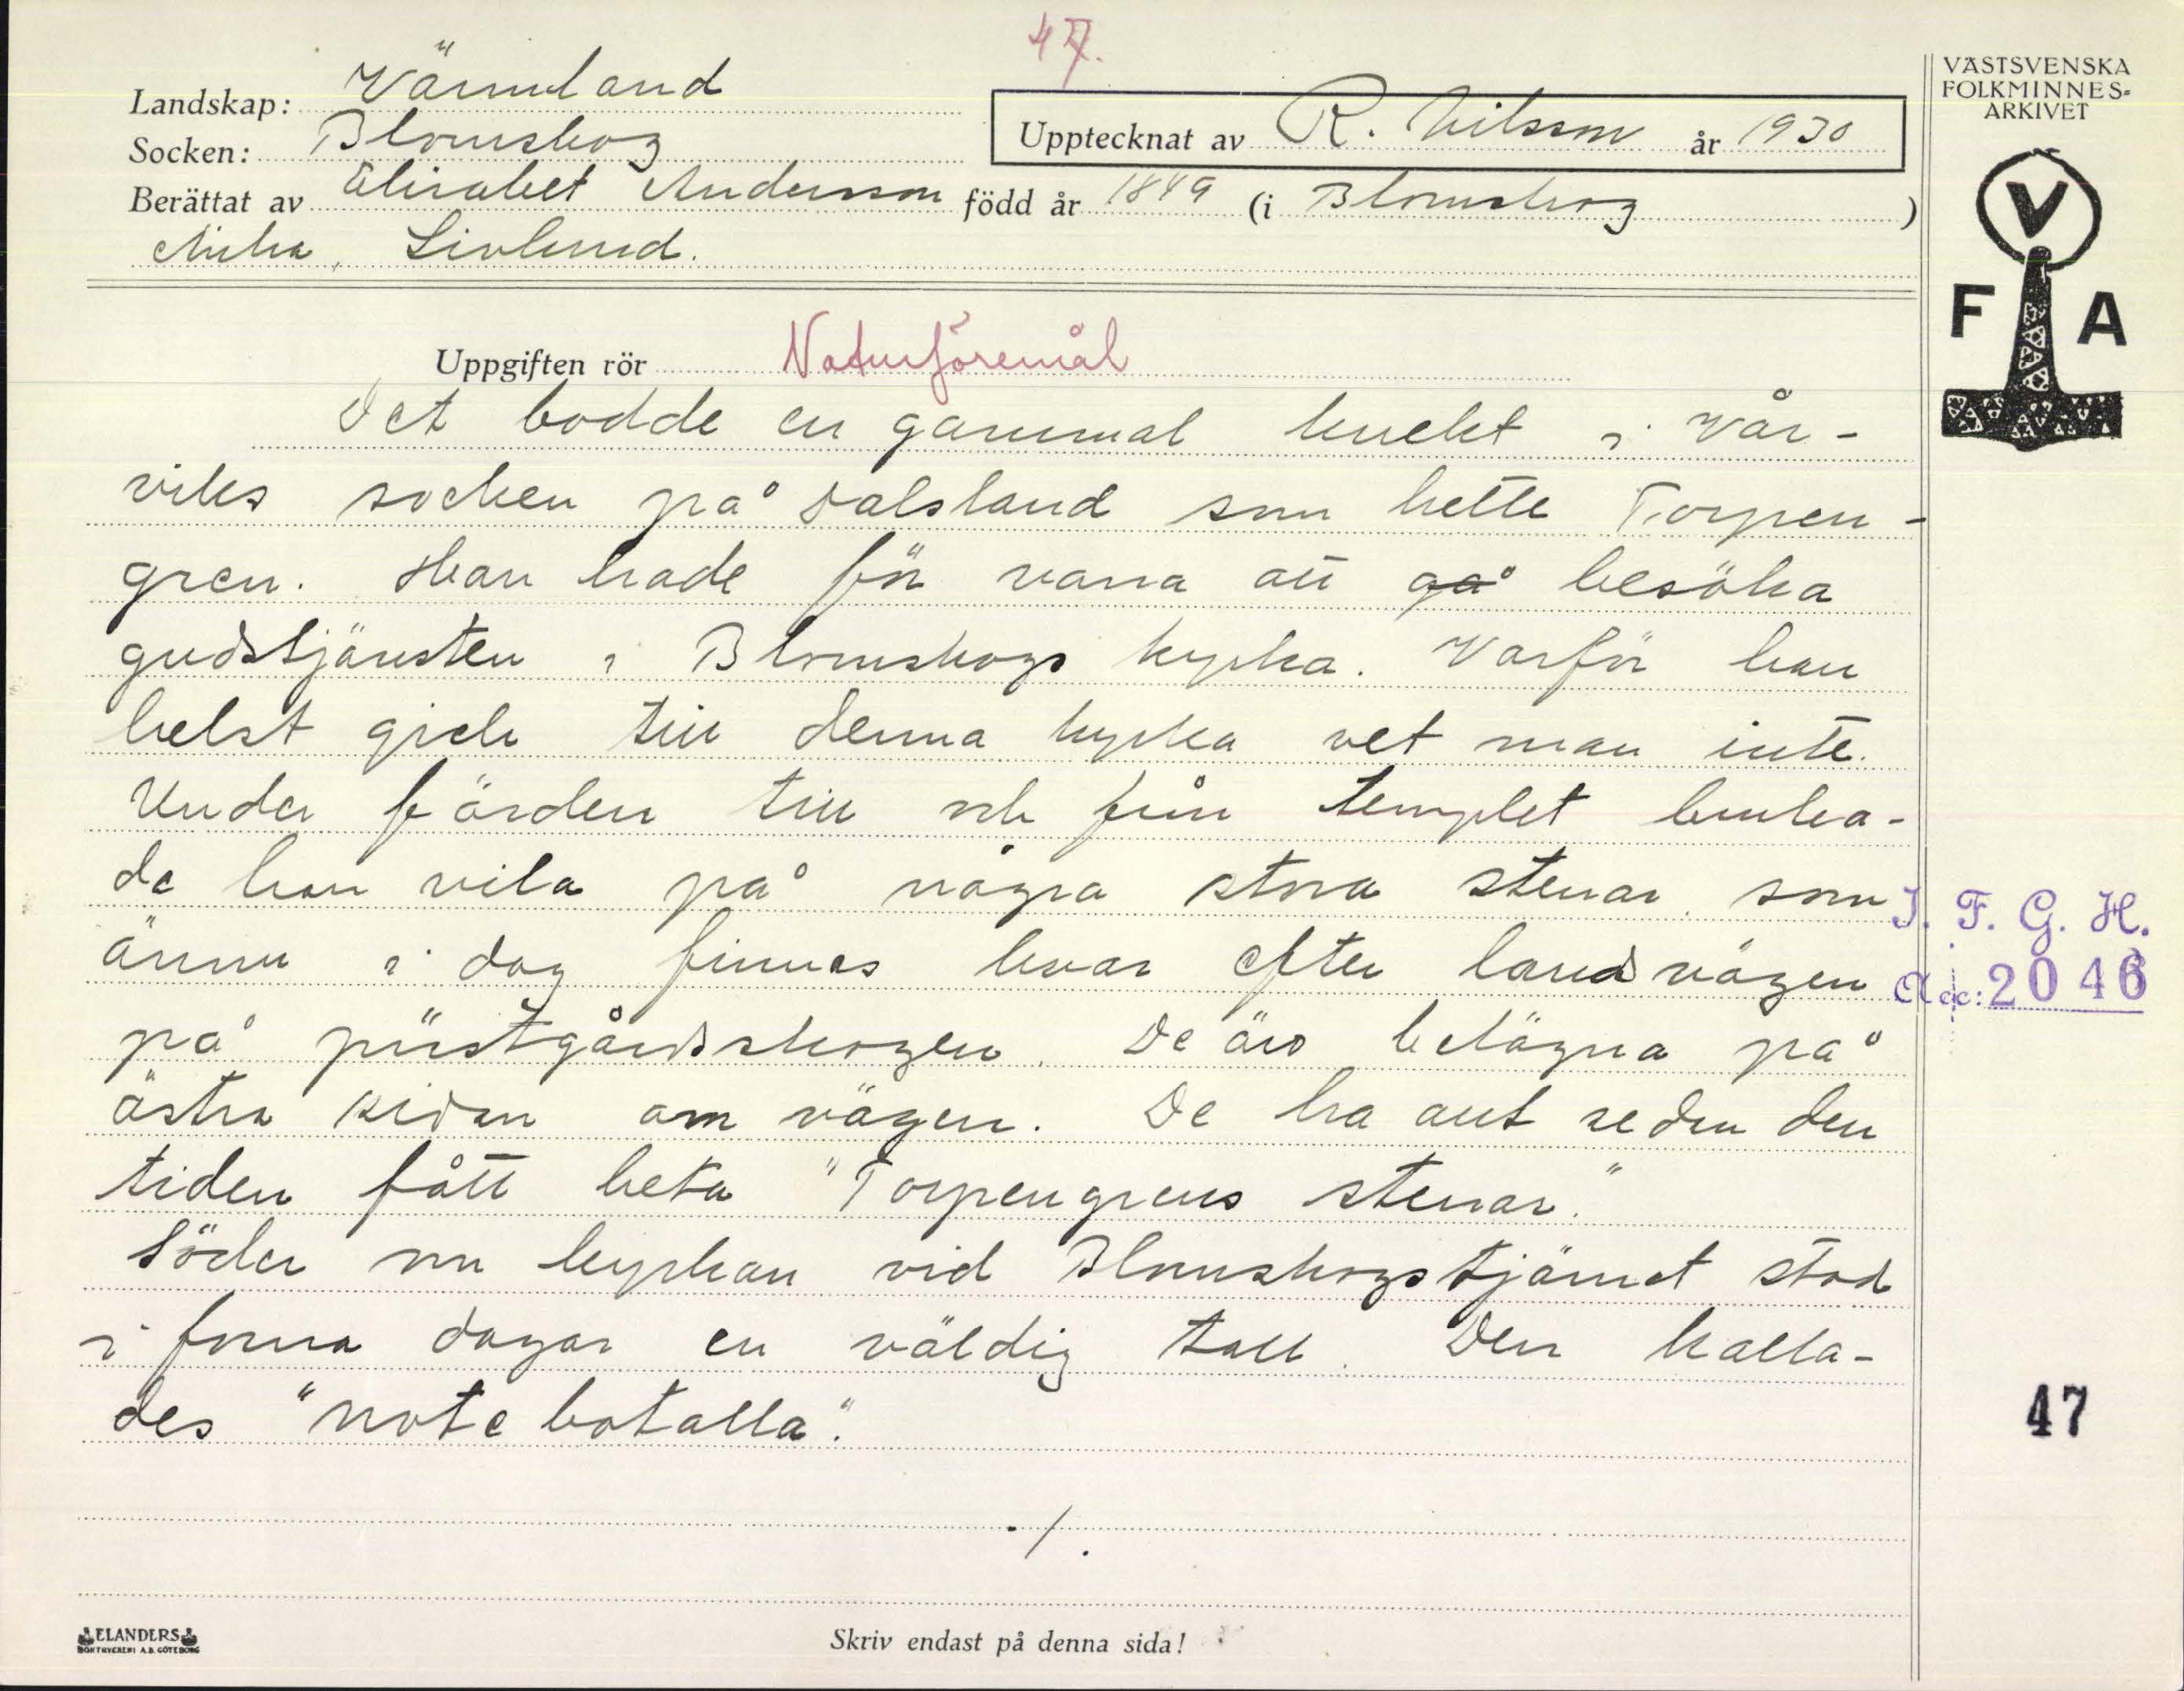 47.
Landskap: Värmland
Socken: Blomskog
Upptecknat av R. Nilsson år 1930
Berättat av Elisabet Andersson född år 1849 (i Blomskog)
Änka, Livlund.
VÄSTSVENSKA
FOLKMINNES-
ARKIVET
V
F A
Uppgiften rör Naturföremål
Det bodde en gammal knekt i Vår-
viks socken på Dalsland som hette Torpen-
gren. Han hade för vana att gå besöka
gudstjänsten i Blomskogs kyrka. Varför han
helst gick till denna kyrka vet man inte.
Under färden till och från templet bruka-
de han vila på några stora stenar som
ännu i dag finnas kvar efter landsvägen
på prästgårdsskogen. De äro belägna på
östra sidan om vägen. De ha allt sedan den
tiden fått heta "Torpengrens stenar."
Söder om kyrkan vid Blomskogstjärnet stod
i forna dagar en väldig tall. Den kalla-
des "note botalla".
./.
I. F. G. H.
Acc: 2046
47
ELANDERS
BOKTRYCKERI A.B. GÖTEBORG
Skriv endast på denna sida!